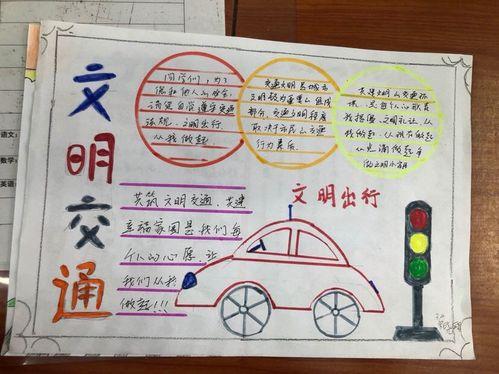 文明交通
同学们，为了
你和他人的安全，
请您自觉遵守交通
法规，文明出行，
从我做起
交通文明是城市
文明极为重要的组成
部分，交通文明程度
取决于市民的交通
行为素质
共建文明的交通环
境，是每个人的职责
我提倡，文明礼让，从
我做起，从现在做起
从点滴做起争
做文明小市民
文明出行
共筑文明交通，共建
幸福家园是我们每
个人的心愿，让
我们从我
做起!!!
语文：
数学：
英语